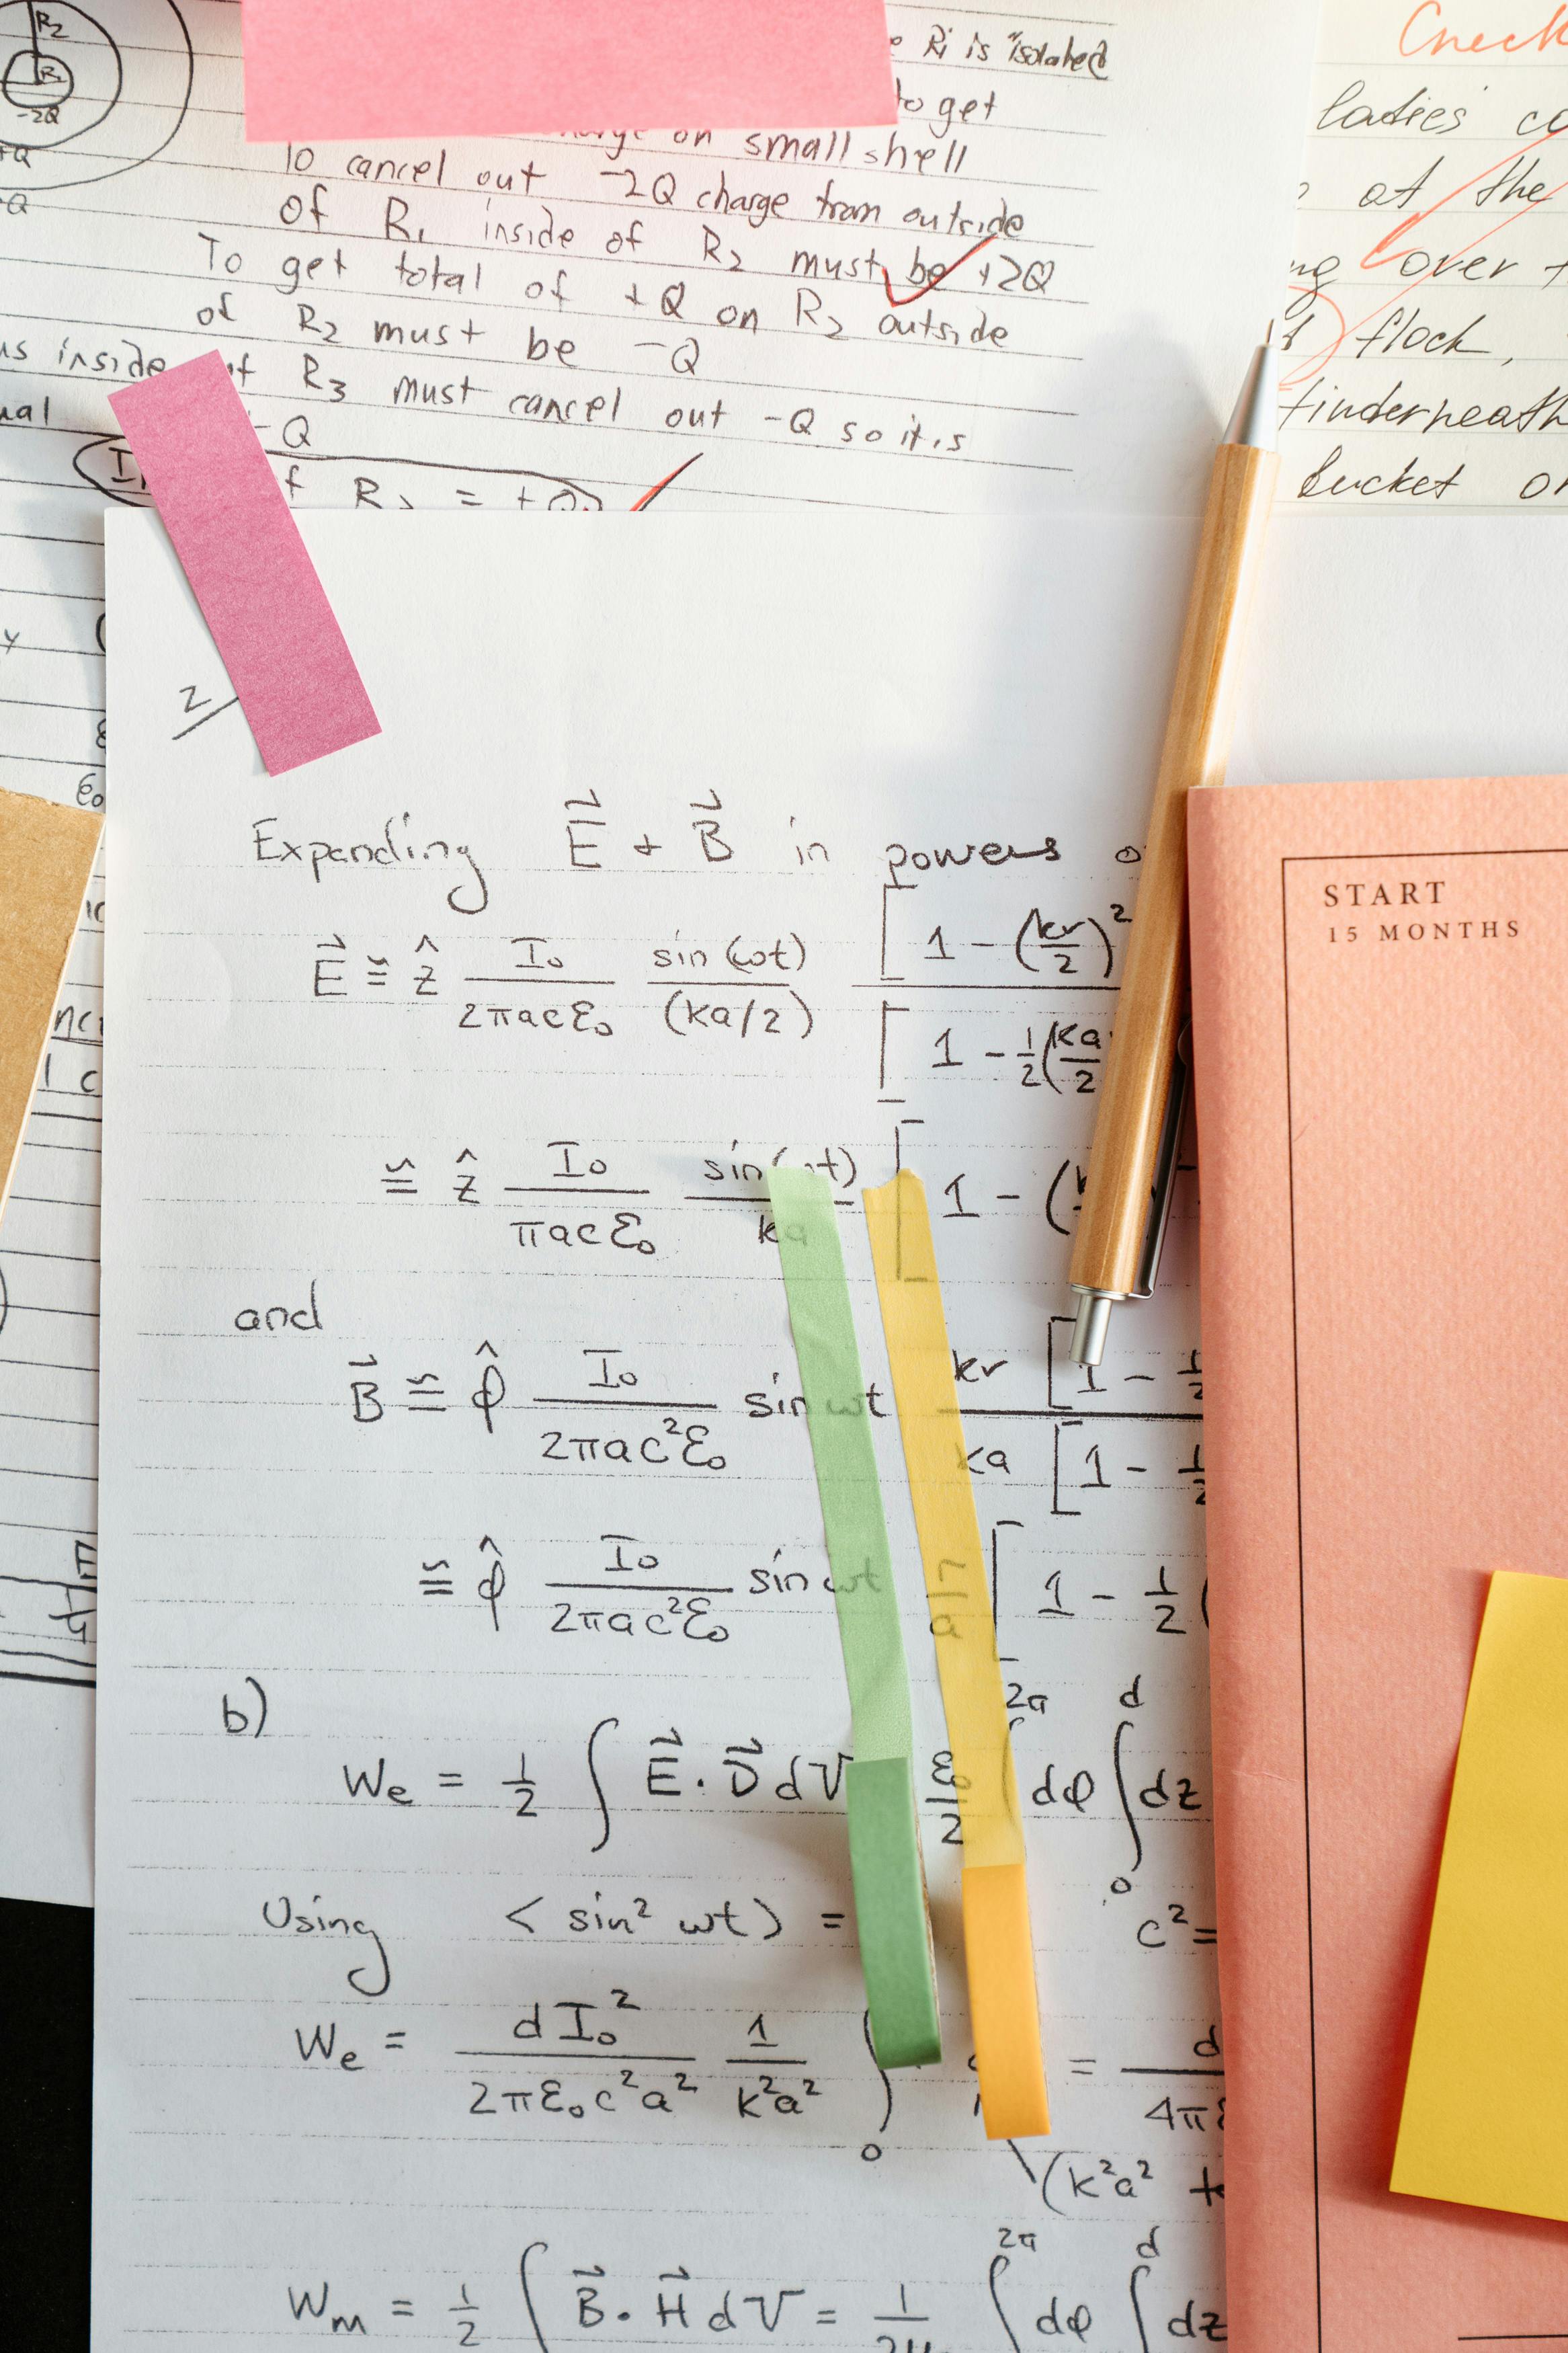 R₂
R₁
-2Q
+Q
-Q
R₁ is "isolated
to get
on small shell
To cancel out -2Q charge from outside
of R₁ inside of R₂ must be +2Q
To get total of +Q on R₂ outside
of R₂ must be -Q
inside of R₃ must cancel out -Q so it is
-Q
R₂ = +Q
Check
ladies
at the
over
flock,
bucket
2
ε₀
Expanding E⃗ + B⃗ in powers
E⃗ ≅ ẑ I₀/(2πacε₀) sin(ωt)/(ka/2) [1 - (kr/2)² / [1 - 1/2(ka/2
≅ ẑ I₀/(πacε₀) sin(ωt)/ka [1 - (
and
B⃗ ≅ φ̂ I₀/(2πac²ε₀) sin ωt kr [1 - 1/2 / ka [1 - 1/2
≅ φ̂ I₀/(2πac²ε₀) sin ωt r/a [1 - 1/2 (
b)
We = 1/2 ∫ E⃗ · D⃗ dV ε₀/2 ∫ 2π dφ ∫₀ᵈ dz
Using < sin² ωt > = c² =
We = dI₀²/(2πε₀c²a²) 1/(k²a²) ∫₀ = d/4π
(k²a²
Wm = 1/2 ∫ B⃗ · H⃗ dV = 1/2μ ∫ 2π dφ ∫ d dz
START
15 MONTHS